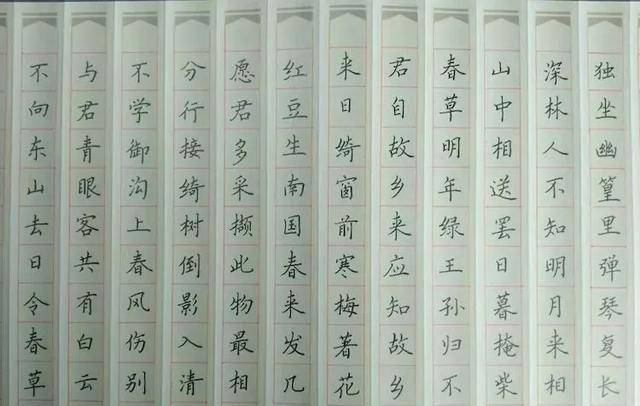 独坐幽篁里弹琴复长
深林人不知明月来相
山中相送罢日暮掩柴
春草明年绿王孙归不
君自故乡来应知故乡
来日绮窗前寒梅著花
红豆生南国春来发几
愿君多采撷此物最相
分行接绮树倒影入清
不学御沟上春风伤别
与君青眼客共有白云
不向东山去日令春草